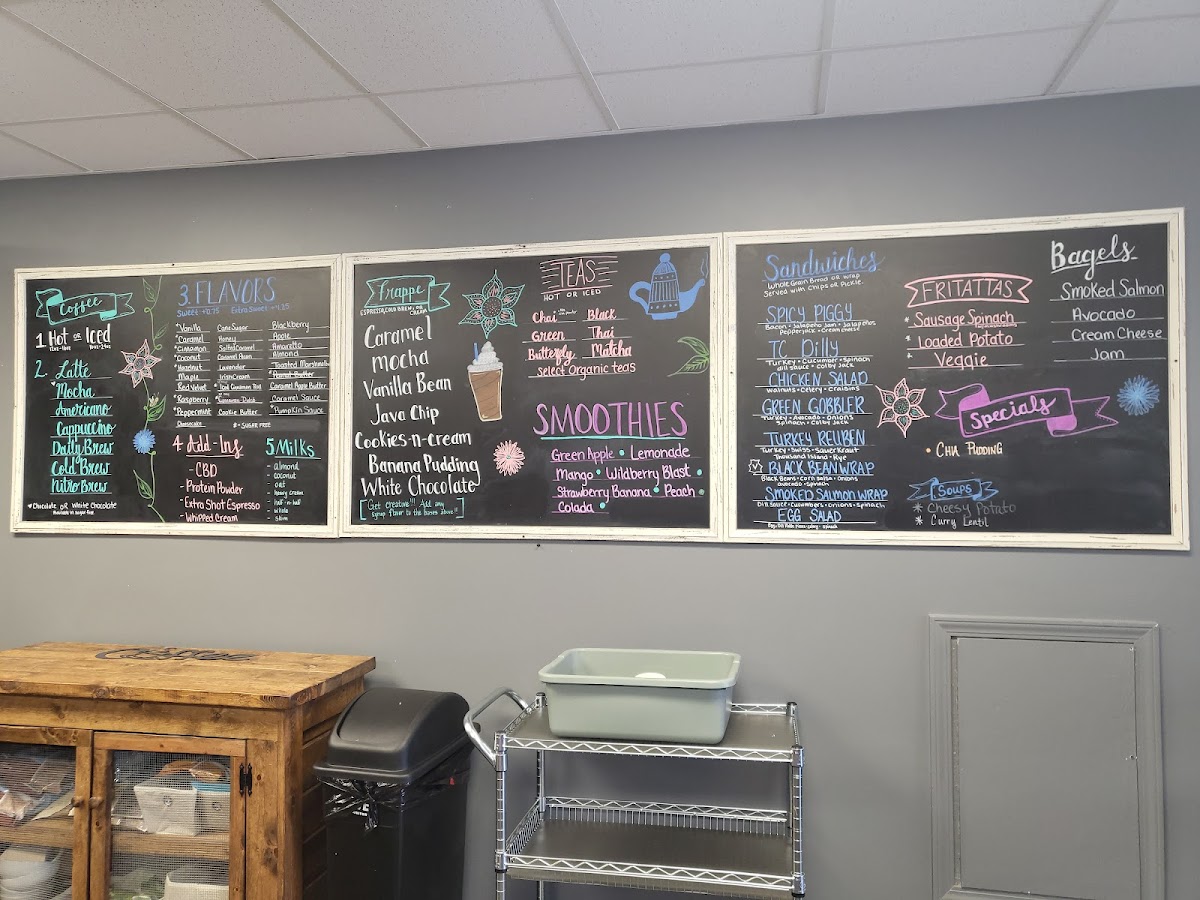 Coffee
1 Hot or Iced
2. Latte
*Mocha
Americano
Cappuccino
Daily Brew
Cold Brew
Nitro Brew
*Chocolate or White Chocolate
Available in sugar free
3. FLAVORS
Sweet +0.75 Extra Sweet +1.25
*Vanilla
*Caramel
*Cinnamon
*Coconut
*Hazelnut
Maple
Red Velvet
*Raspberry
*Peppermint
Cheesecake
Cane Sugar
Honey
Salted Caramel
Caramel Pecan
Lavender
Irish Cream
Cookie Butter
Blackberry
Apple
Amaretto
Almond
Toasted Marshmallow
*Peanut Butter
Caramel Apple Butter
Caramel Sauce
*Pumpkin Sauce
* = SUGAR FREE
4 Add-Ins
- CBD
- Protein Powder
- Extra Shot Espresso
- Whipped Cream
5 Milks
- almond
- coconut
- oat
- heavy cream
- half-n-half
- whole
- skim
Frappe
Caramel
mocha
Vanilla Bean
Java Chip
Cookies-n-cream
Banana Pudding
White Chocolate
Get creative!!! Add any
syrup flavor to the bases above!!
TEAS
HOT OR ICED
Chai
Green
Butterfly
Black
Thai
Matcha
Select Organic teas
SMOOTHIES
Green Apple • Lemonade
Mango • Wildberry Blast •
Strawberry Banana • Peach •
Colada •
Sandwiches
Whole Grain Bread or Wrap
Served with Chips or Pickle.
SPICY PIGGY
Bacon • Jalapeño Jam • Jalapeños
Pepperjack • Cream Cheese
TC Dilly
Turkey • Cucumber • Spinach
dill sauce • Colby Jack
CHICKEN SALAD
Walnuts • Celery • Craisins
GREEN GOBBLER
Turkey • Avocado • Onions
Spinach • Colby Jack
TURKEY REUBEN
Turkey • Swiss • Sauerkraut
Thousand Island • Rye
BLACK BEAN WRAP
Black Beans • Corn Salsa • Onions
avocado • Spinach
SMOKED SALMON WRAP
Dill Sauce • Cucumbers • Onions • Spinach
EGG SALAD
FRITATTAS
* Sausage Spinach
* Loaded Potato
* Veggie
Specials
• CHIA PUDDING
SOUPS
* Cheesy Potato
* Curry Lentil
Bagels
Smoked Salmon
Avocado
Cream Cheese
Jam
Coffee